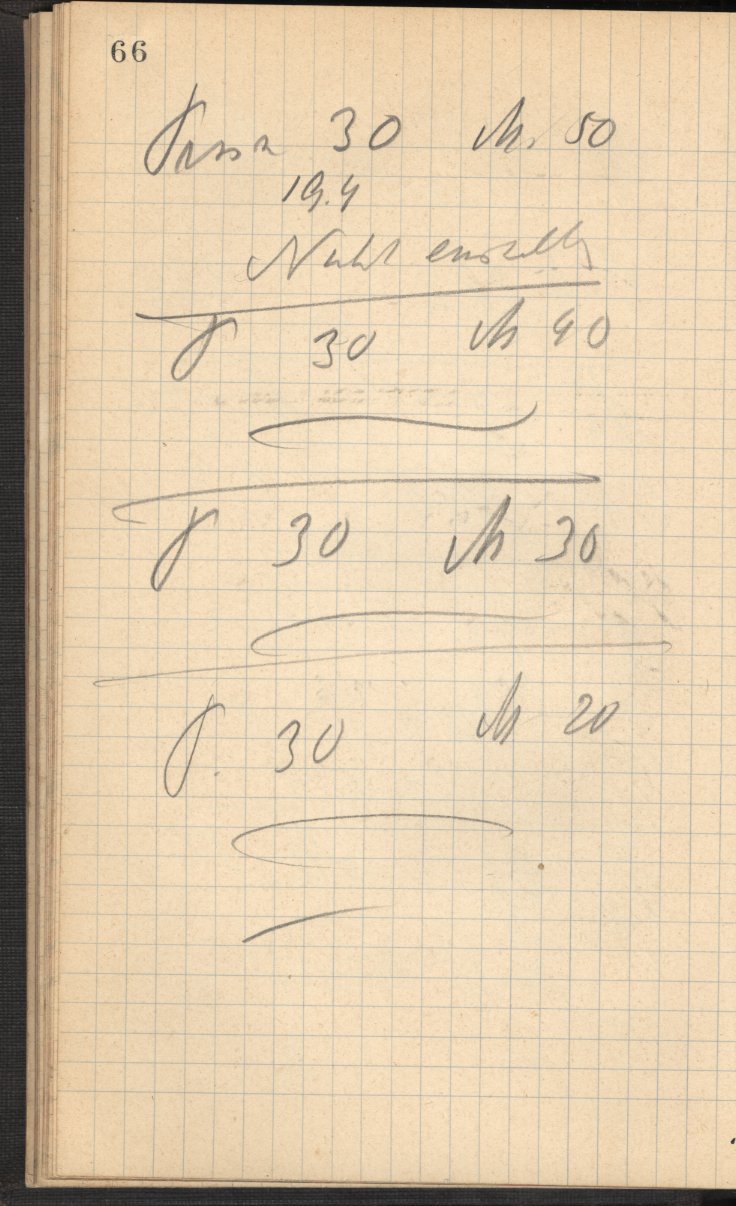 66
30 M. 50
19.4
Nicht
P 30 M 40
P 30 M 30
P. 30 M 20